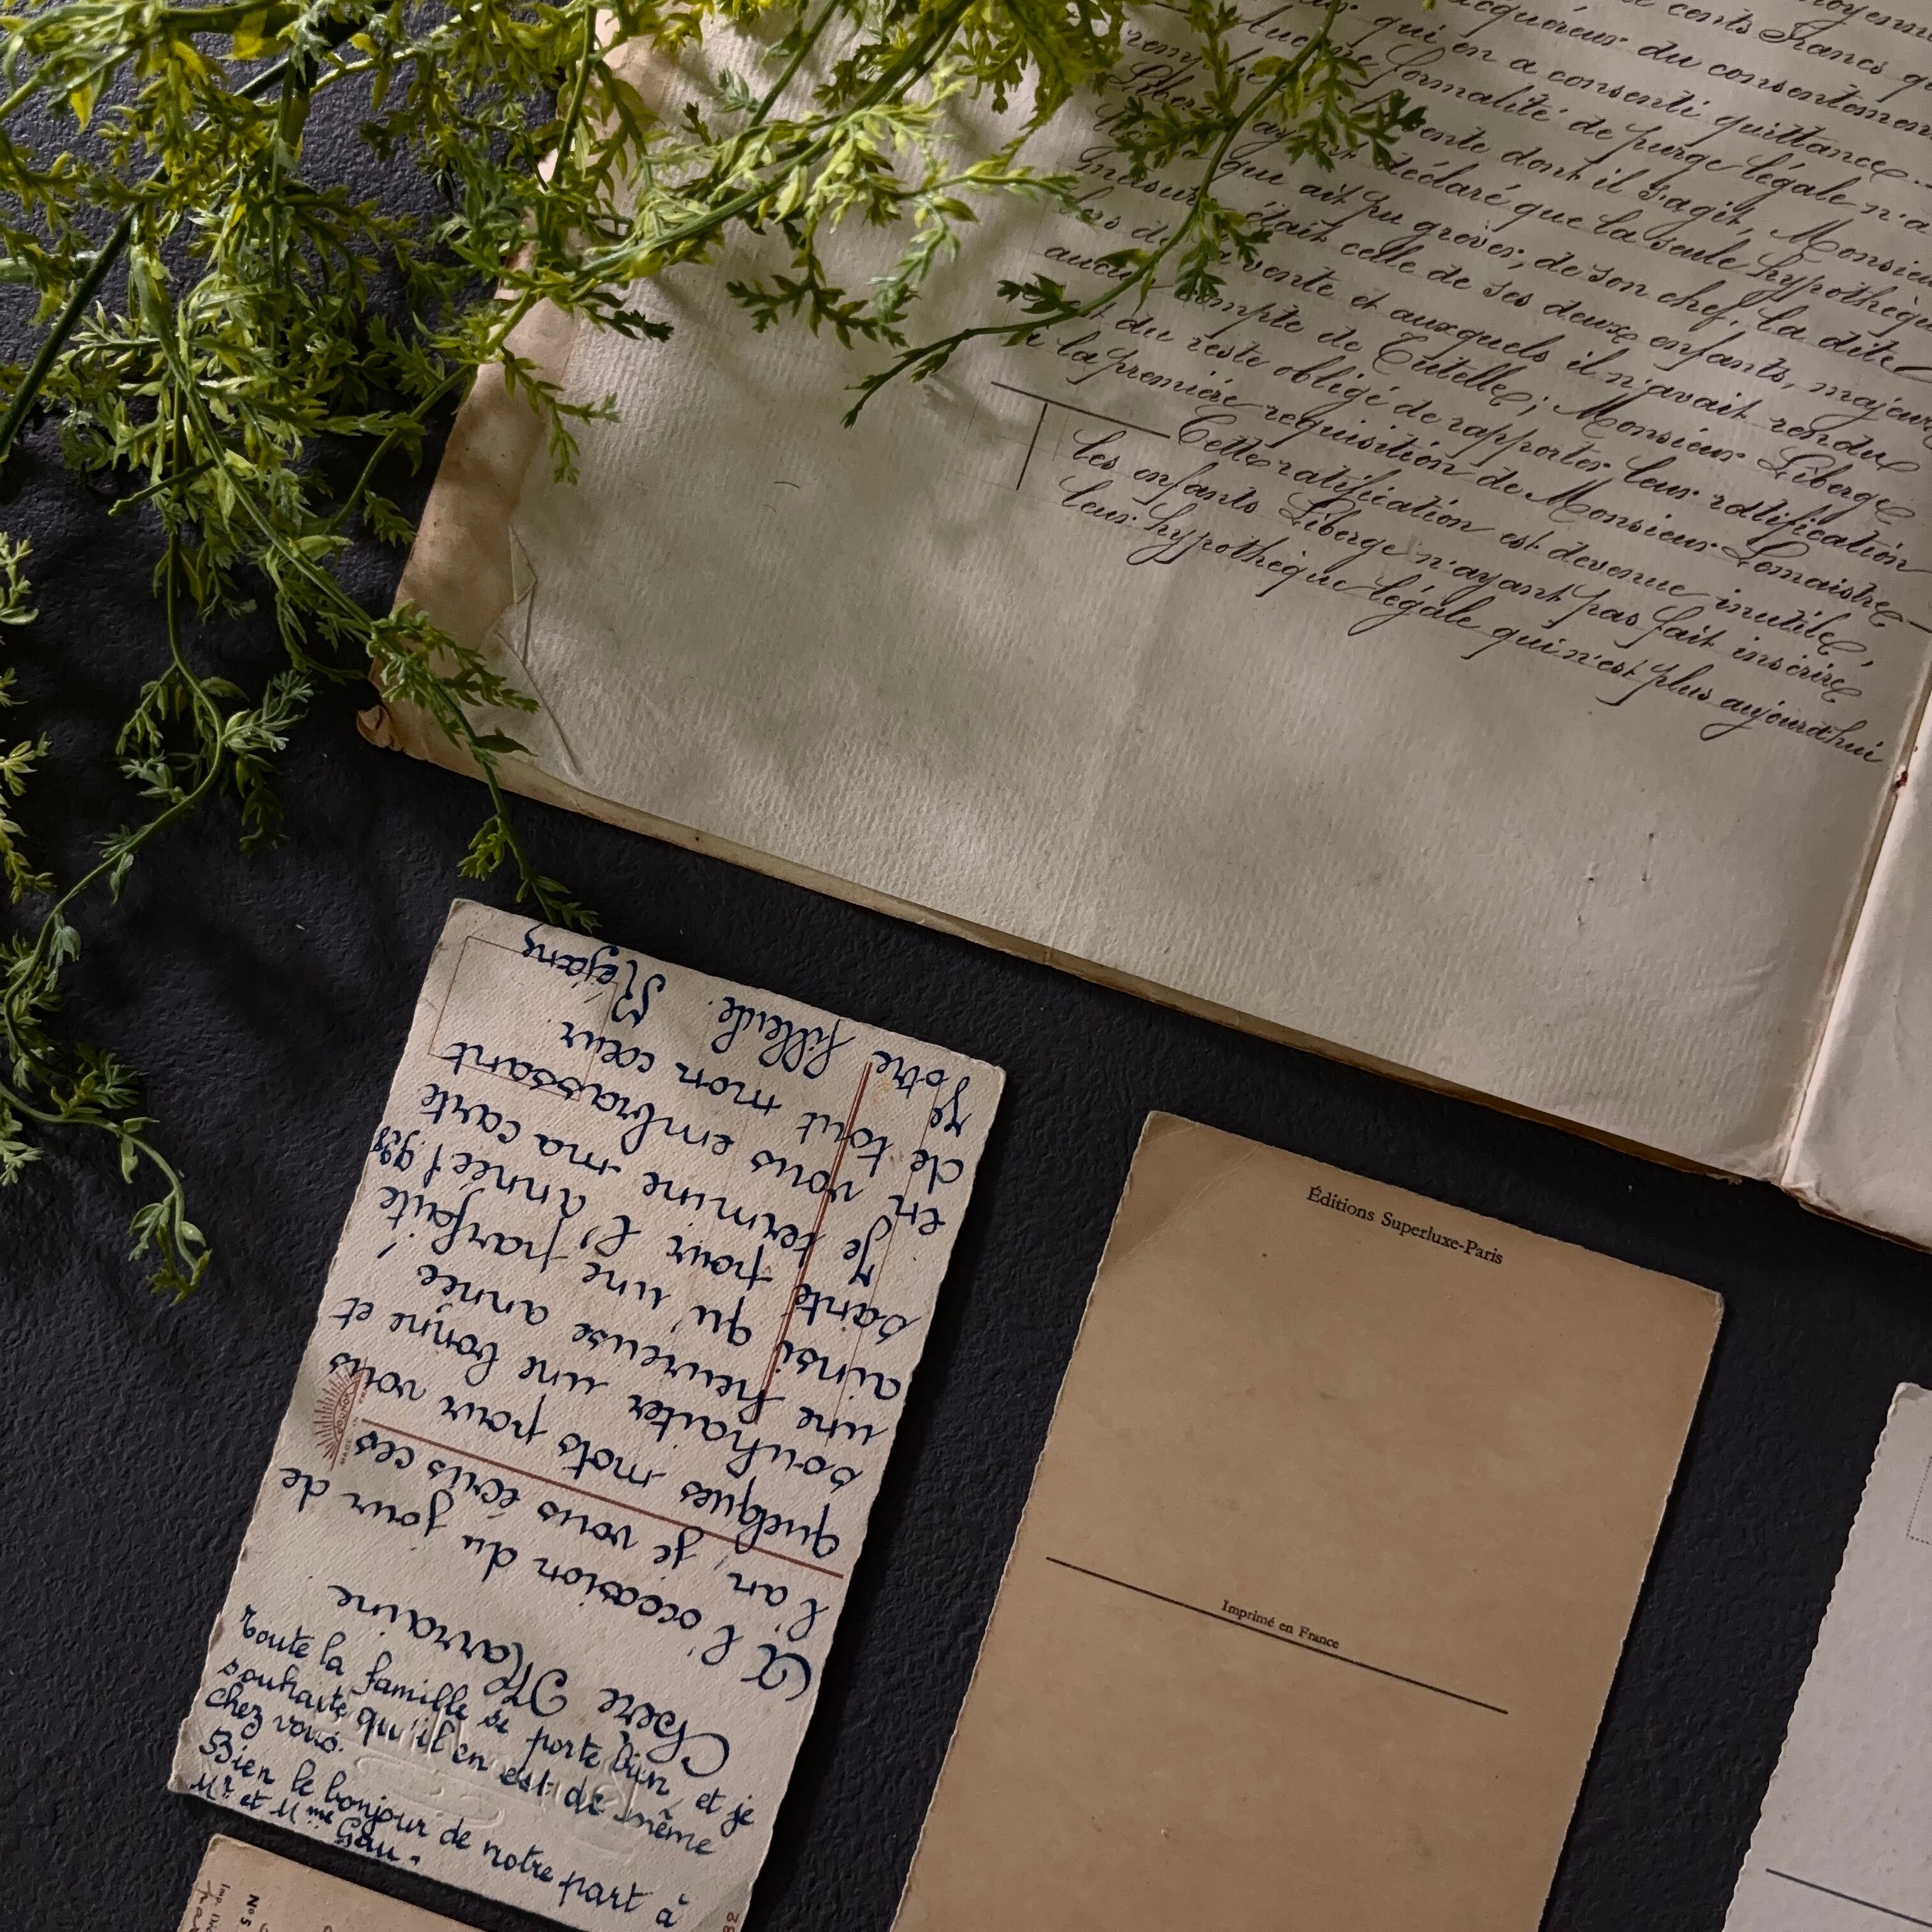 moyenn
cents francs q
acquéreur du consentemen
qui en a consenti quittance
Aucune formalité de purge légale n'a
vente dont il s'agit, Monsieu
déclaré que la seule hypothèqu
que ait pu grever, de son chef, la dite
mesure était celle de ses deux enfants, majeur
vente et auxquels il n'avait rendu
aucun compte de Tutelle; Monsieur Liberge
du reste obligé de rapporter leur ratification
à la première requisition de Monsieur Lemaistre
Cette ratification est devenue inutile,
les enfants Liberge n'ayant pas fait inscrire
leur hypothèque légale qui n'est plus aujourd'hui
Chère Marraine
A l'occasion du jour de
l'an, je vous écris ces
quelques mots pour vous
souhaiter une bonne et
une heureuse année
ainsi qu'une parfaite
santé pour l'année!
Je termine ma carte
en vous embrassant
de tout mon cœur
Votre filleule. Réjane
toute la famille se porte bien, et je
souhaite qu'il en est de même
chez vous.
Bien le bonjour de notre part à
Mr et Mme Gau.
Éditions Superluxe-Paris
Imprimé en France
N° 5